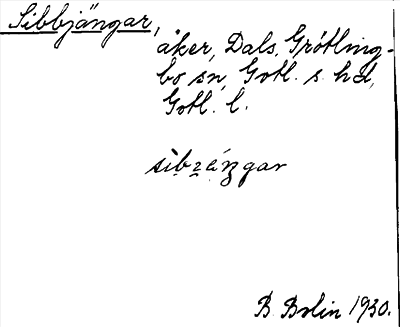 Sibbjängar,
åker, Dals, Grötling-
bo sn, Gotl. s. hd,
Gotl. l.
B. Bolin 1930.